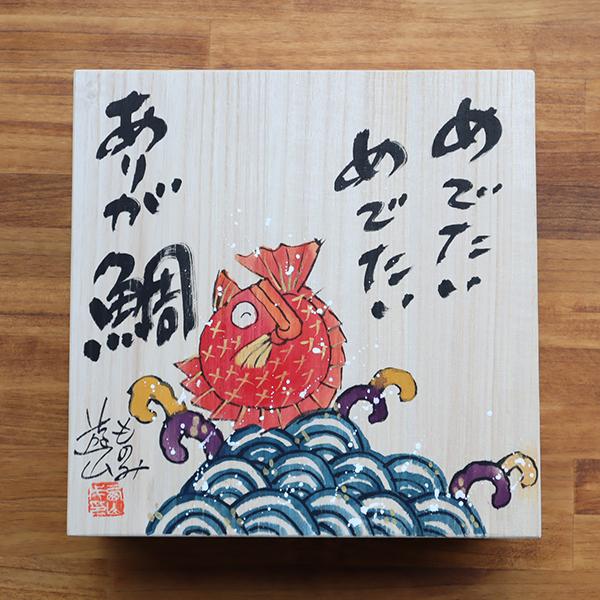 めでたい
めでたい
ありが
鯛
ものみ
遊山